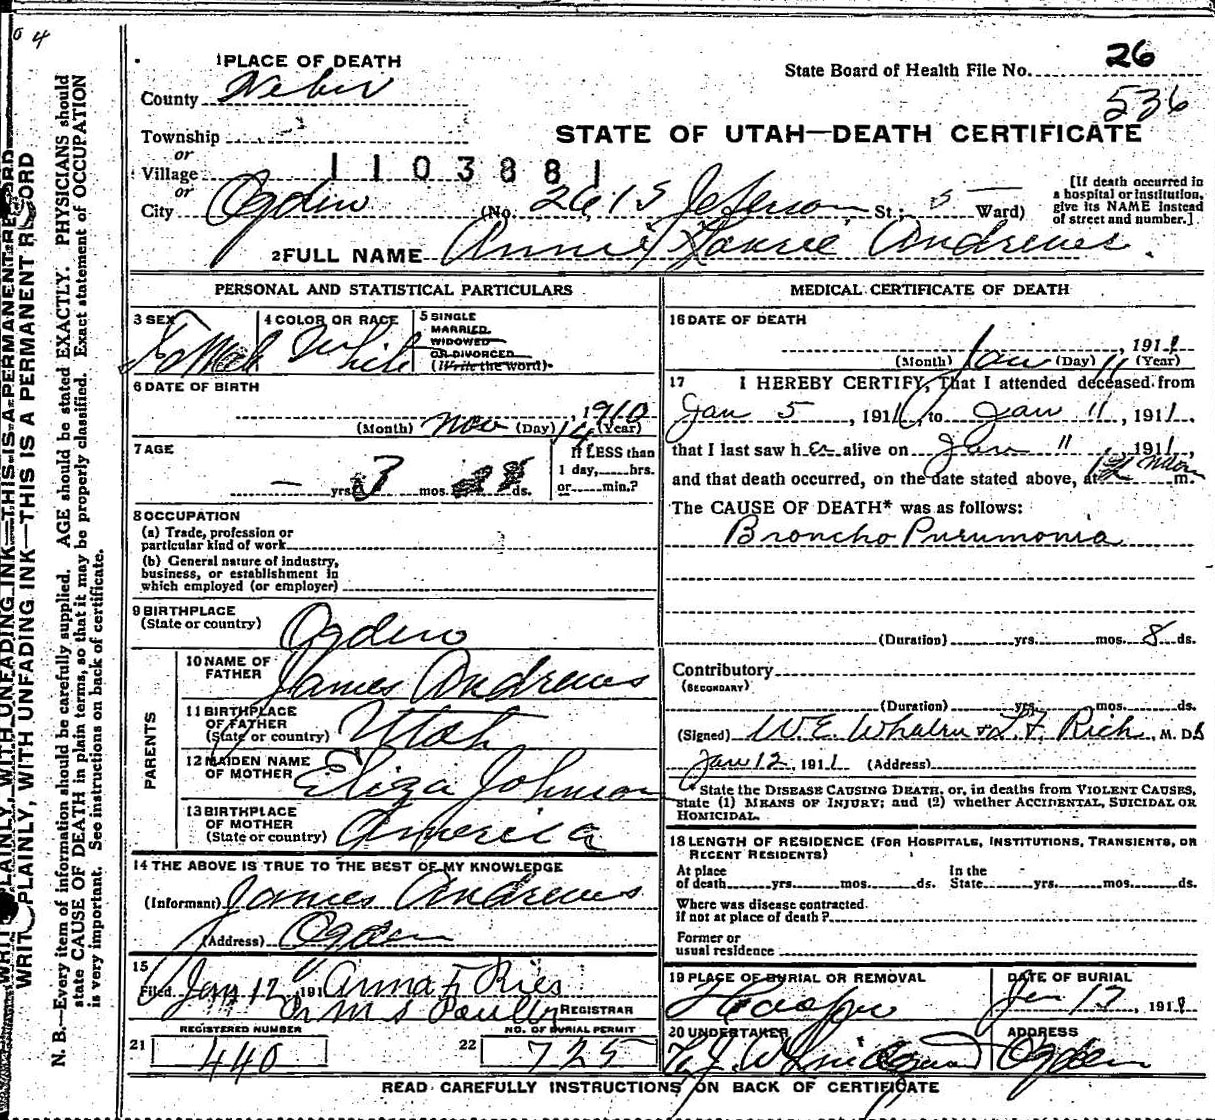 04
1 PLACE OF DEATH
County Weber
State Board of Health File No. 26
536
Township
or
STATE OF UTAH—DEATH CERTIFICATE
Village 1103881
or
City Ogden (No. 2615 Jefferson St.; 5 Ward)
[If death occurred in
a hospital or institution,
give its NAME instead
of street and number.]
2 FULL NAME Annie Laurie Andrews
PERSONAL AND STATISTICAL PARTICULARS
3 SEX Female
4 COLOR OR RACE White
5 SINGLE
MARRIED
WIDOWED
OR DIVORCED
(Write the word)
6 DATE OF BIRTH
(Month) Nov (Day) 14 1910 (Year)
7 AGE
— yrs. mos. ds.
If LESS than
1 day, hrs.
or min.?
8 OCCUPATION
(a) Trade, profession or
particular kind of work
(b) General nature of industry,
business, or establishment in
which employed (or employer)
9 BIRTHPLACE
(State or country) Ogden
PARENTS
10 NAME OF
FATHER James Andrews
11 BIRTHPLACE
OF FATHER
(State or country) Utah
12 MAIDEN NAME
OF MOTHER Eliza Johnson
13 BIRTHPLACE
OF MOTHER
(State or country) America
14 THE ABOVE IS TRUE TO THE BEST OF MY KNOWLEDGE
(Informant) James Andrews
(Address) Ogden
15
Filed Jan 12 191 Anna F Ries
REGISTRAR
REGISTERED NUMBER
21 440
NO. OF BURIAL PERMIT
22 725
MEDICAL CERTIFICATE OF DEATH
16 DATE OF DEATH
(Month) Jan (Day) 11 1911 (Year)
17 I HEREBY CERTIFY, That I attended deceased from
Jan 5, 1911, to Jan 11, 1911,
that I last saw her alive on Jan 11, 1911,
and that death occurred, on the date stated above, at 12 noon m.
The CAUSE OF DEATH* was as follows:
Broncho Pneumonia
(Duration) yrs. mos. 8 ds.
Contributory
(SECONDARY)
(Duration) yrs. mos. ds.
(Signed) W. E. Whalen & L. F. Rich, M. D.
Jan 12, 1911 (Address)
* State the DISEASE CAUSING DEATH, or, in deaths from VIOLENT CAUSES,
state (1) MEANS OF INJURY; and (2) whether ACCIDENTAL, SUICIDAL OR
HOMICIDAL.
18 LENGTH OF RESIDENCE (FOR HOSPITALS, INSTITUTIONS, TRANSIENTS, OR
RECENT RESIDENTS)
At place
of death yrs. mos. ds.
In the
State yrs. mos. ds.
Where was disease contracted
if not at place of death?
Former or
usual residence
19 PLACE OF BURIAL OR REMOVAL
Hooper
DATE OF BURIAL
Jan 12, 1911
20 UNDERTAKER
ADDRESS
Ogden
READ CAREFULLY INSTRUCTIONS ON BACK OF CERTIFICATE
WRITE PLAINLY, WITH UNFADING INK—THIS IS A PERMANENT RECORD
WRITE PLAINLY, WITH UNFADING INK—THIS IS A PERMANENT RECORD
N. B.—Every item of information should be carefully supplied. AGE should be stated EXACTLY. PHYSICIANS should
state CAUSE OF DEATH in plain terms, so that it may be properly classified. Exact statement of OCCUPATION
is very important. See instructions on back of certificate.